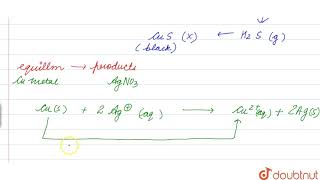 CuS (X) ← H2S (g)
(black)
equillm → products
Cu metal AgNO3
Cu(s) + 2 Ag⊕ (aq) → Cu2+(aq) + 2Ag(s)
doubtnut